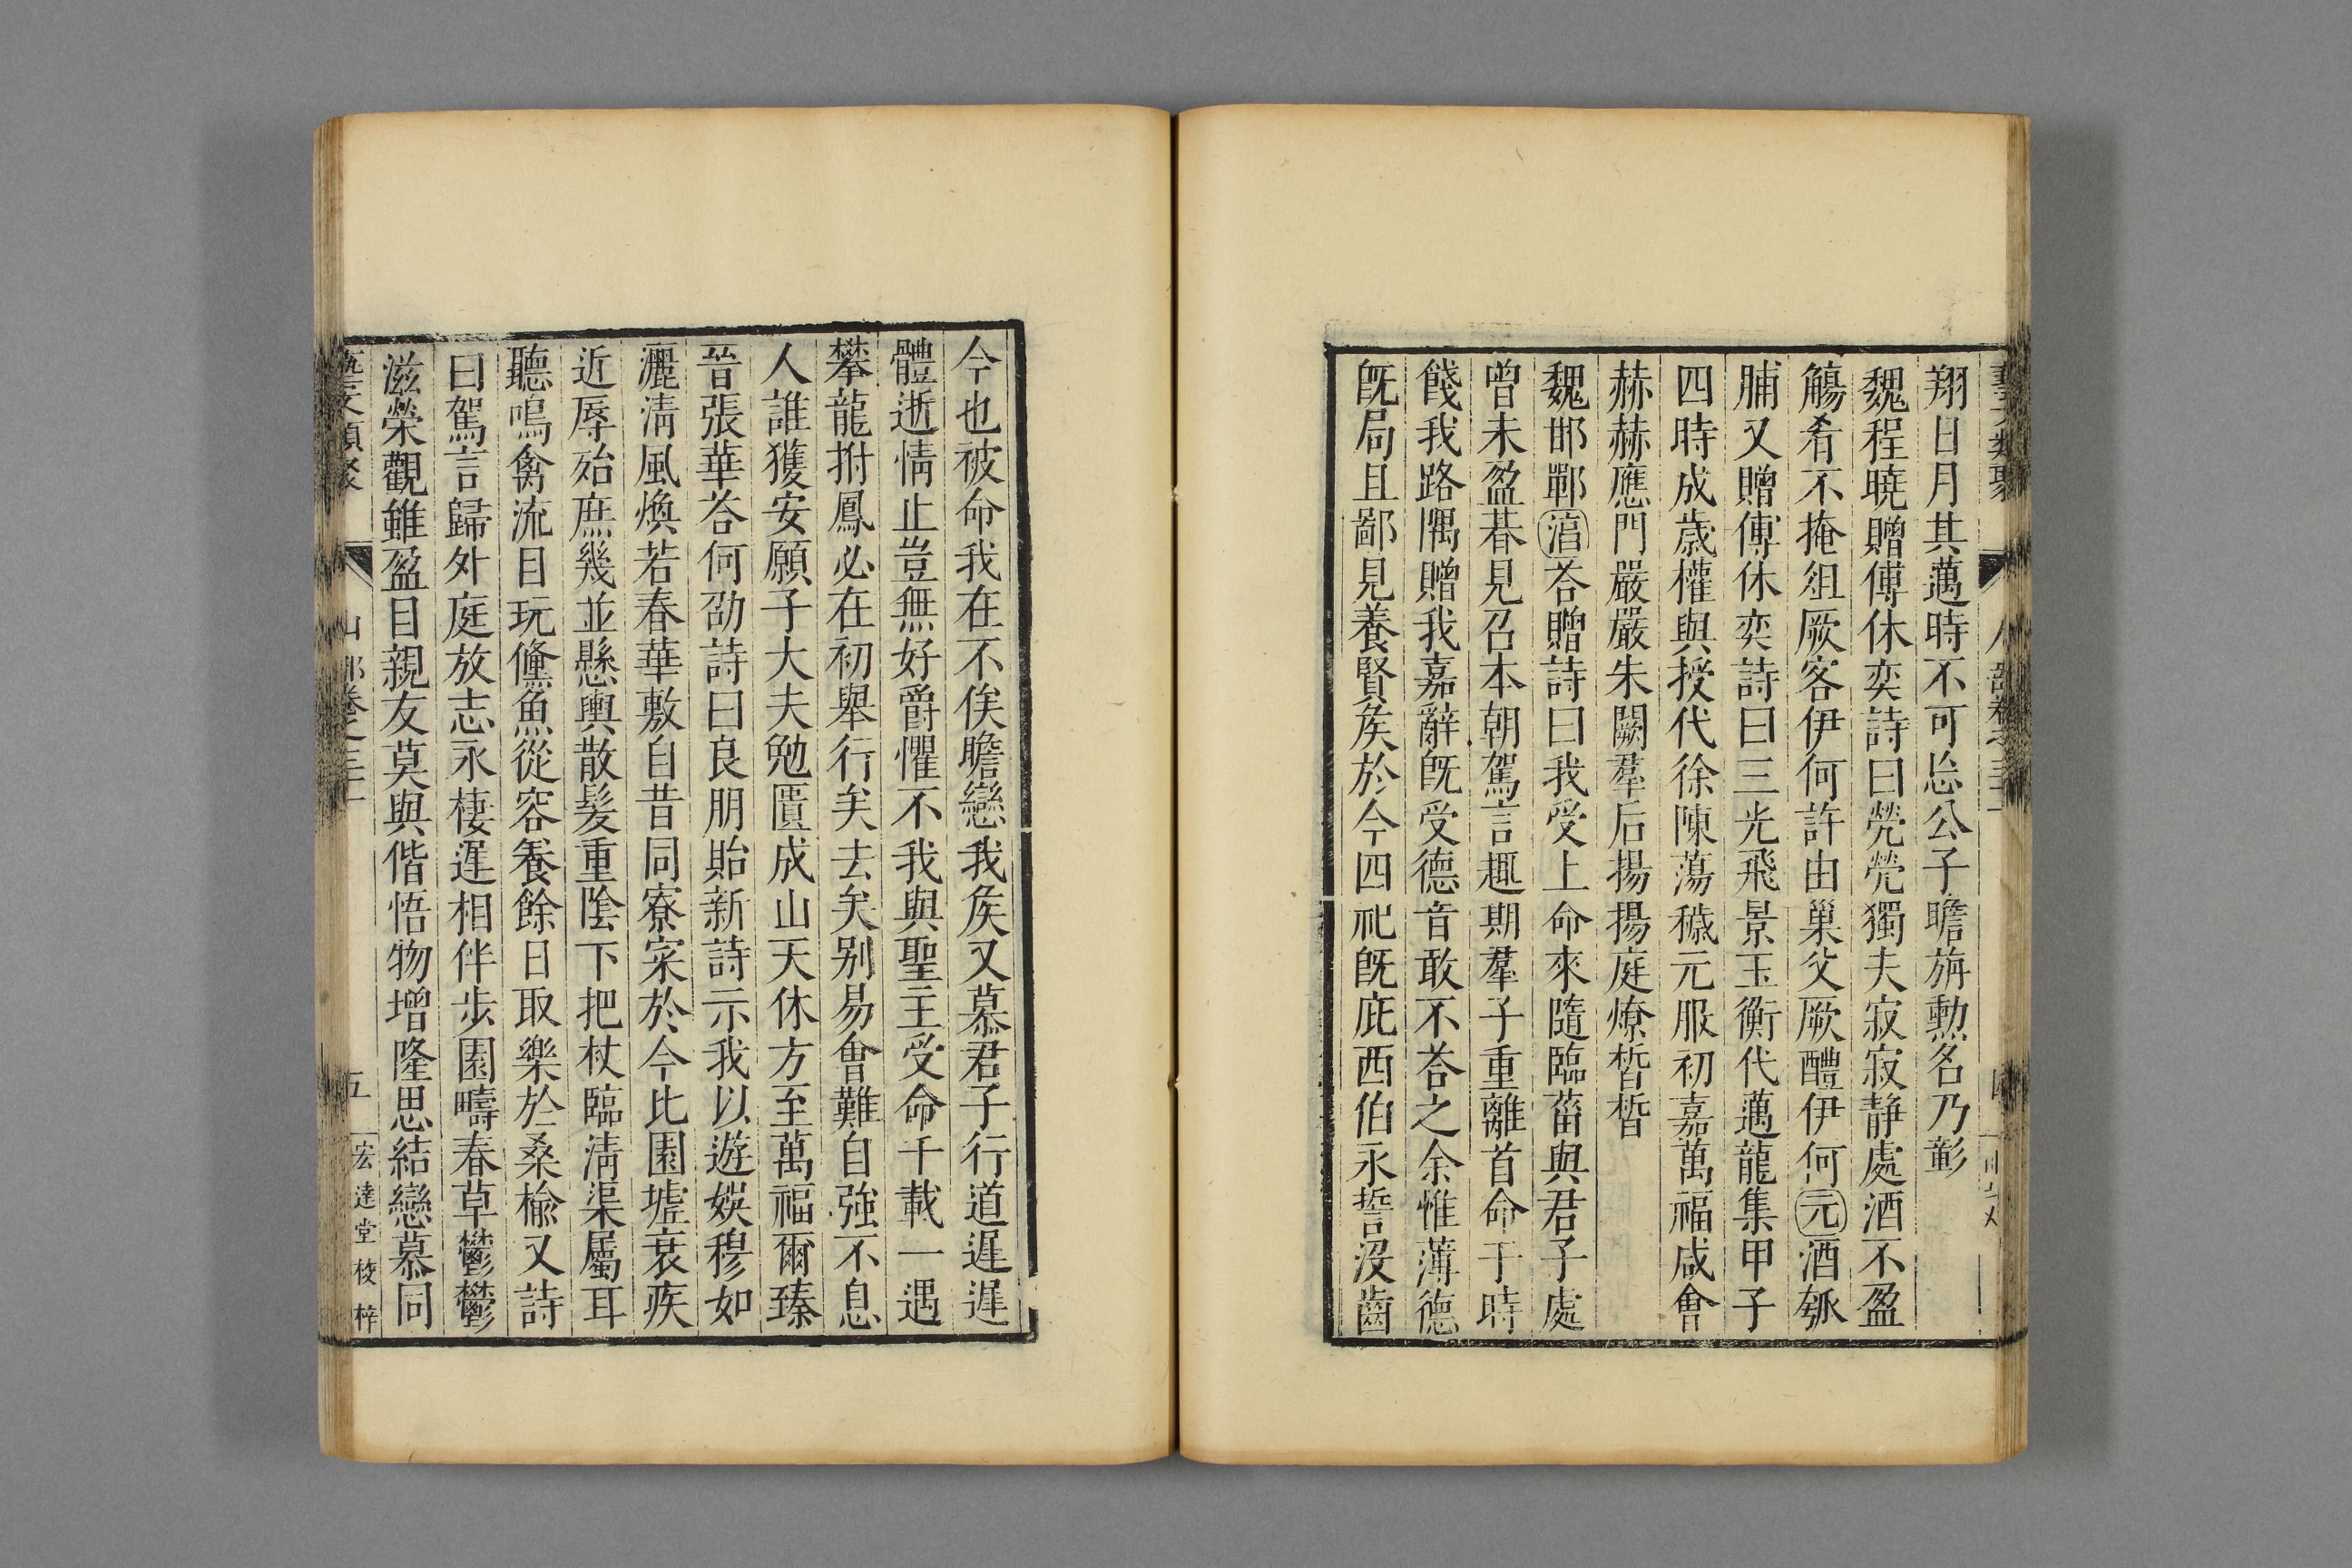 翔日月其邁時不可㤀公子瞻斾勲名乃彰
魏程曉贈傅休奕詩曰煢煢獨夫寂寂静處酒不盈
觴肴不掩俎厥客伊何許由巢父厥醴伊何元酒瓠
脯又贈傅休奕詩曰三光飛景玉衡代邁龍集甲子
四時成歳權與授代徐陳蕩穢元服初嘉萬福咸會
赫赫應門嚴嚴朱闕羣后揚揚庭燎晳晳
魏邯鄲湻荅贈詩曰我受上命來隨臨菑與君子處
曾未盈朞見召本朝駕言趣期羣子重離首命于時
餞我路隅贈我嘉辭旣受德音敢不荅之余惟薄德
旣局且鄙見養賢矦於今四祀旣庇西伯永誓沒齒
今也被命我在不俟瞻戀我矦又慕君子行道遲遲
體逝情止豈無好爵懼不我與聖主受命千載一遇
攀龍拊鳳必在初舉行矣去矣别易會難自強不息
人誰獲安願子大夫勉匱成山天休方至萬福爾臻
晉張華荅何劭詩曰良朋貽新詩示我以遊娛穆如
灑清風煥若春華敷自昔同寮寀於今比園墟衰疾
近辱殆庶幾並懸輿散髮重陰下把杖臨清渠屬耳
聽鳴禽流目玩儵魚從容養餘日取樂於桑楡又詩
曰駕言歸外庭放志永棲遲相伴步園疇春草鬱鬱
滋榮觀雖盈目親友莫與偕悟物增隆思結戀慕同
五
宏達堂校梓